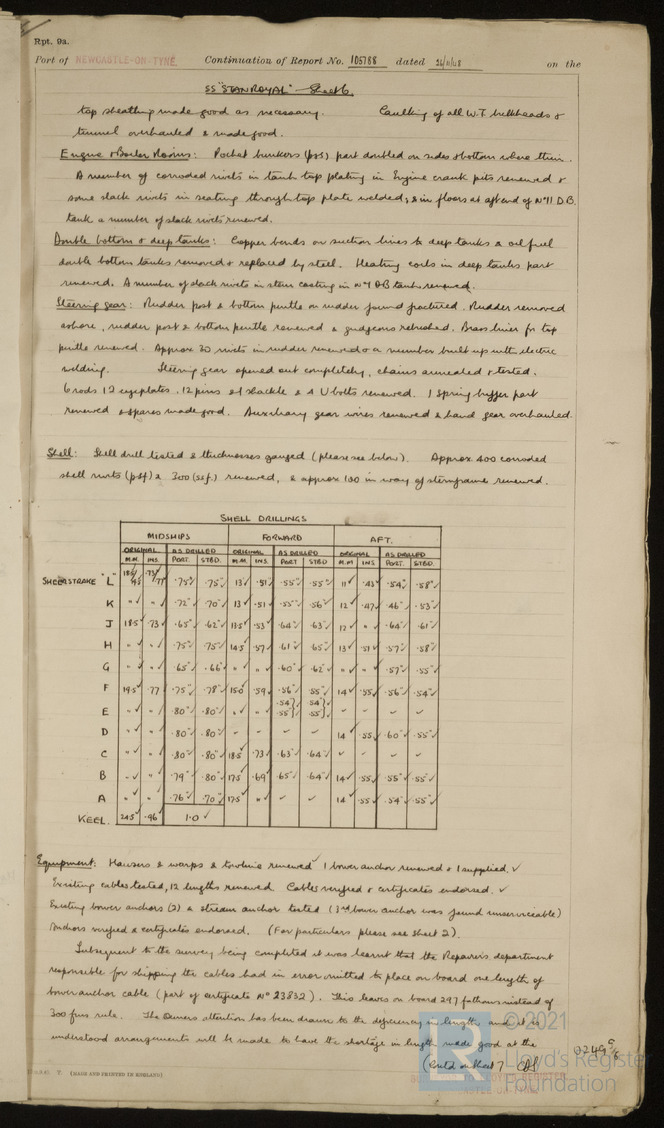 Rpt. 9a.
Port of NEWCASTLE-ON-TYNE Continuation of Report No. 105788 dated 26/11/48 on the
SS "STANROYAL" Sheet 6
top sheathing made good as necessary. Caulking of all W.T. bulkheads &
tunnel overhauled & made good.
Engine & Boiler Rooms: Pocket bunkers (p&s) part doubled on sides & bottom where thin.
A number of corroded rivets in tank top plating in Engine crank pits renewed &
some slack rivets in seating through top plate welded, & in floors at aft end of No 11 D.B.
tank a number of slack rivets renewed.
Double bottom & deep tanks: Copper bends on suction lines to deep tanks & oil fuel
double bottom tanks removed & replaced by steel. Heating coils in deep tanks part
renewed. A number of slack rivets in stem casting in No 1 DB tank renewed.
Steering gear: Rudder post & bottom pintle on rudder found fractured. Rudder removed
ashore, rudder post & bottom pintle renewed & gudgeons rebushed. Brass liner for top
pintle renewed. Approx 30 rivets in rudder renewed & a number built up with electric
welding. Steering gear opened out completely, chains annealed & tested.
6 rods 12 eyeplates, 12 pins & 1 shackle & 4 U bolts renewed. 1 Spring buffer part
renewed & spares made good. Auxiliary gear wires renewed & hand gear overhauled.
Shell: Shell drill tested & thicknesses gauged (please see below). Approx 400 corroded
shell rivets (p&f) & 300 (s&f.) renewed, & approx 100 in way of sternframe renewed.
SHELL DRILLINGS
MIDSHIPS FORWARD AFT.
ORIGINAL AS DRILLED ORIGINAL AS DRILLED ORIGINAL AS DRILLED
M.M. INS. PORT. STBD. M.M. INS. PORT STBD. M.M. INS. PORT. STBD.
SHEERSTRAKE L .75" .75" 13 .51 .55" .55" 11 .43 .54" .58"
K " " .72" .70" 13 .51 .55" .56" 12 .47 .46" .53"
J 18.5 .73 .65" .62" 13.5 .53 .64" .63" 12 " .64" .61"
H " " .75" .75" 14.5 .57 .61" .65" 13 .51 .57" .58"
G " " .65" .66" " " .60" .62" " " .57" .55"
F 19.5 .77 .75" .78" 15.0 .59 .56" .55" 14 .55 .56" .54"
E " " .80" .80" " " .54" .55" .54" .55" - - - -
D " " .80" .80" - - - - 14 .55 .60" .55"
C " " .80" .80" 18.5 .73 .63" .64" - - - -
B " " .79" .80" 17.5 .69 .65" .64" 14 .55 .55" .55"
A " " .76" .70" 17.5 " - - 14 .55 .54" .55"
KEEL. 24.5 .96 1.0
Equipment: Hawsers & warps & towline renewed 1 bower anchor renewed & 1 supplied.
Existing cables tested, 12 lengths renewed. Cables verified & certificates endorsed.
Existing bower anchors (2) & stream anchor tested (3rd bower anchor was found unserviceable)
Anchors verified & certificates endorsed. (For particulars please see Sheet 2).
Subsequent to the survey being completed it was learnt that the Repairers department
responsible for shipping the cables had in error omitted to place on board one length of
bower anchor cable (part of certificate No 23832). This leaves on board 297 fathoms instead of
300 fms rule. The Owners attention has been drawn to the deficiency in length and it is
understood arrangements will be made to have the shortage in length made good at the
(Contd on sheet 7
© 2021
Lloyd's Register
Foundation
(MADE AND PRINTED IN ENGLAND)